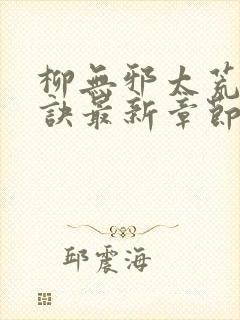 柳無邪太荒
訣最新章節
邱震海